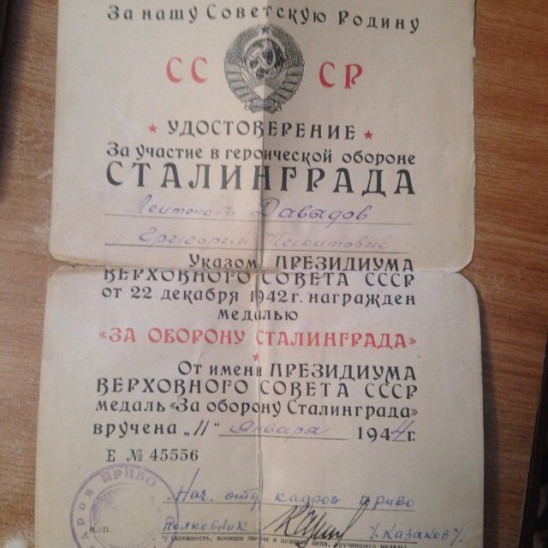 За нашу Советскую Родину
СССР
УДОСТОВЕРЕНИЕ
За участие в героической обороне
СТАЛИНГРАДА
Лейтенант Давыдов
Григорий Никитович
Указом ПРЕЗИДИУМА
ВЕРХОВНОГО СОВЕТА СССР
от 22 декабря 1942 г. награжден
медалью
«ЗА ОБОРОНУ СТАЛИНГРАДА»
От имени ПРЕЗИДИУМА
ВЕРХОВНОГО СОВЕТА СССР
медаль «За оборону Сталинграда»
вручена „11" января 1944 г.
Е № 45556
Нач. отд кадров ПриВО
М.П. полковник /Казаков/